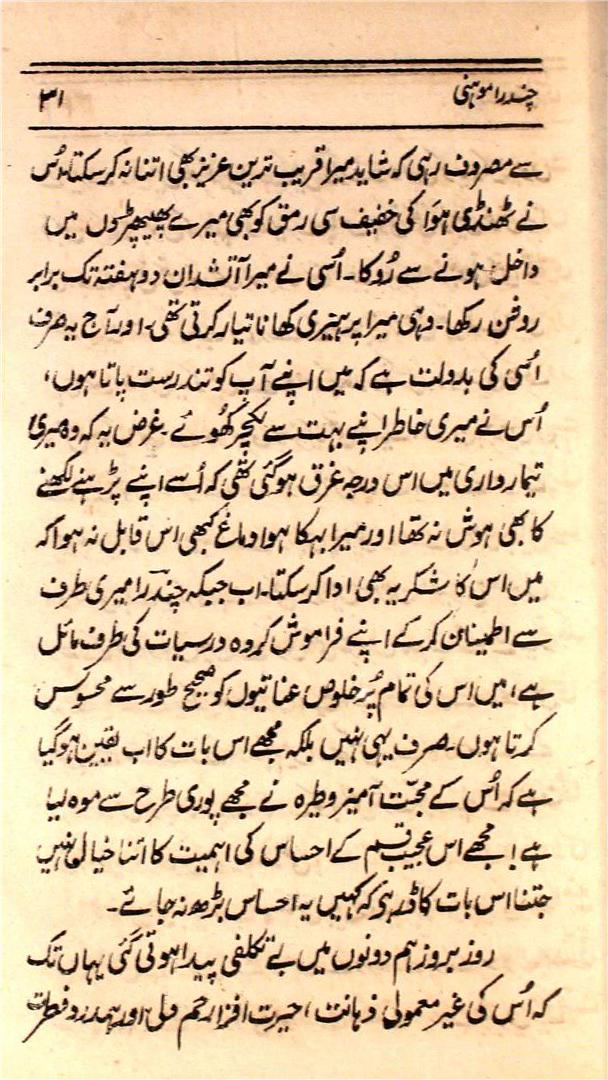 چندرا موہنی
۳۱
سے مصروف رہی کہ شاید میرا قریب ترین عزیز بھی اتنا نہ کر سکتا۔ اُس
نے ٹھنڈی ہوَا کی خفیف سی رمق کو بھی میرے پھیپھڑوں میں
داخل ہونے سے رُوکا۔ اُسی نے میرا آتشدان دو ہفتہ تک برابر
روفن رکھا۔ وہی میرا پرہیزی کھانا تیار کرتی تھی۔ اور آج یہ صرف
اُسی کی بدولت ہے کہ میں اپنے آپ کو تندرست پاتا ہوں،
اُس نے میری خاطر اپنے بہت سے لکچر کھُوئے۔ غرض یہ کہ وہ میری
تیمارداری میں اس درجہ غرق ہوگئی تھی کہ اُسے اپنے پڑہنے لکھنے
کا بھی ہوش نہ تھا اور میرا بہکا ہوا دماغ کبھی اس قابل نہ ہوا کہ
میں اس کا شکریہ بھی ادا کر سکتا۔ اب جبکہ چندرا میری طرف
سے اطمینان کر کے اپنے فراموش کردہ درسیات کی طرف مائل
ہے، میں اس کی تمام پُر خلوص عنائیتوں کو صحیح طور سے محسوس
کرتا ہوں۔ صرف یہی نہیں بلکہ مجھے اس بات کا اب یقین ہو گیا
ہے کہ اُس کے محبّت آمیز وطیرہ نے مجھے پوری طرح سے موہ لیا
ہے! مجھے اس عجیب قسم کے احساس کی اہمیت کا اتنا خیال نہیں
جتنا اس بات کا ڈر ہے کہ کہیں یہ احساس بڑھ نہ جائے۔
روز بروز ہم دونوں میں بے تکلفی پیدا ہوتی گئی یہاں تک
کہ اُس کی غیر معمولی ذہانت، حیرت افزا رحم دلی اور ہمدرد فطرت